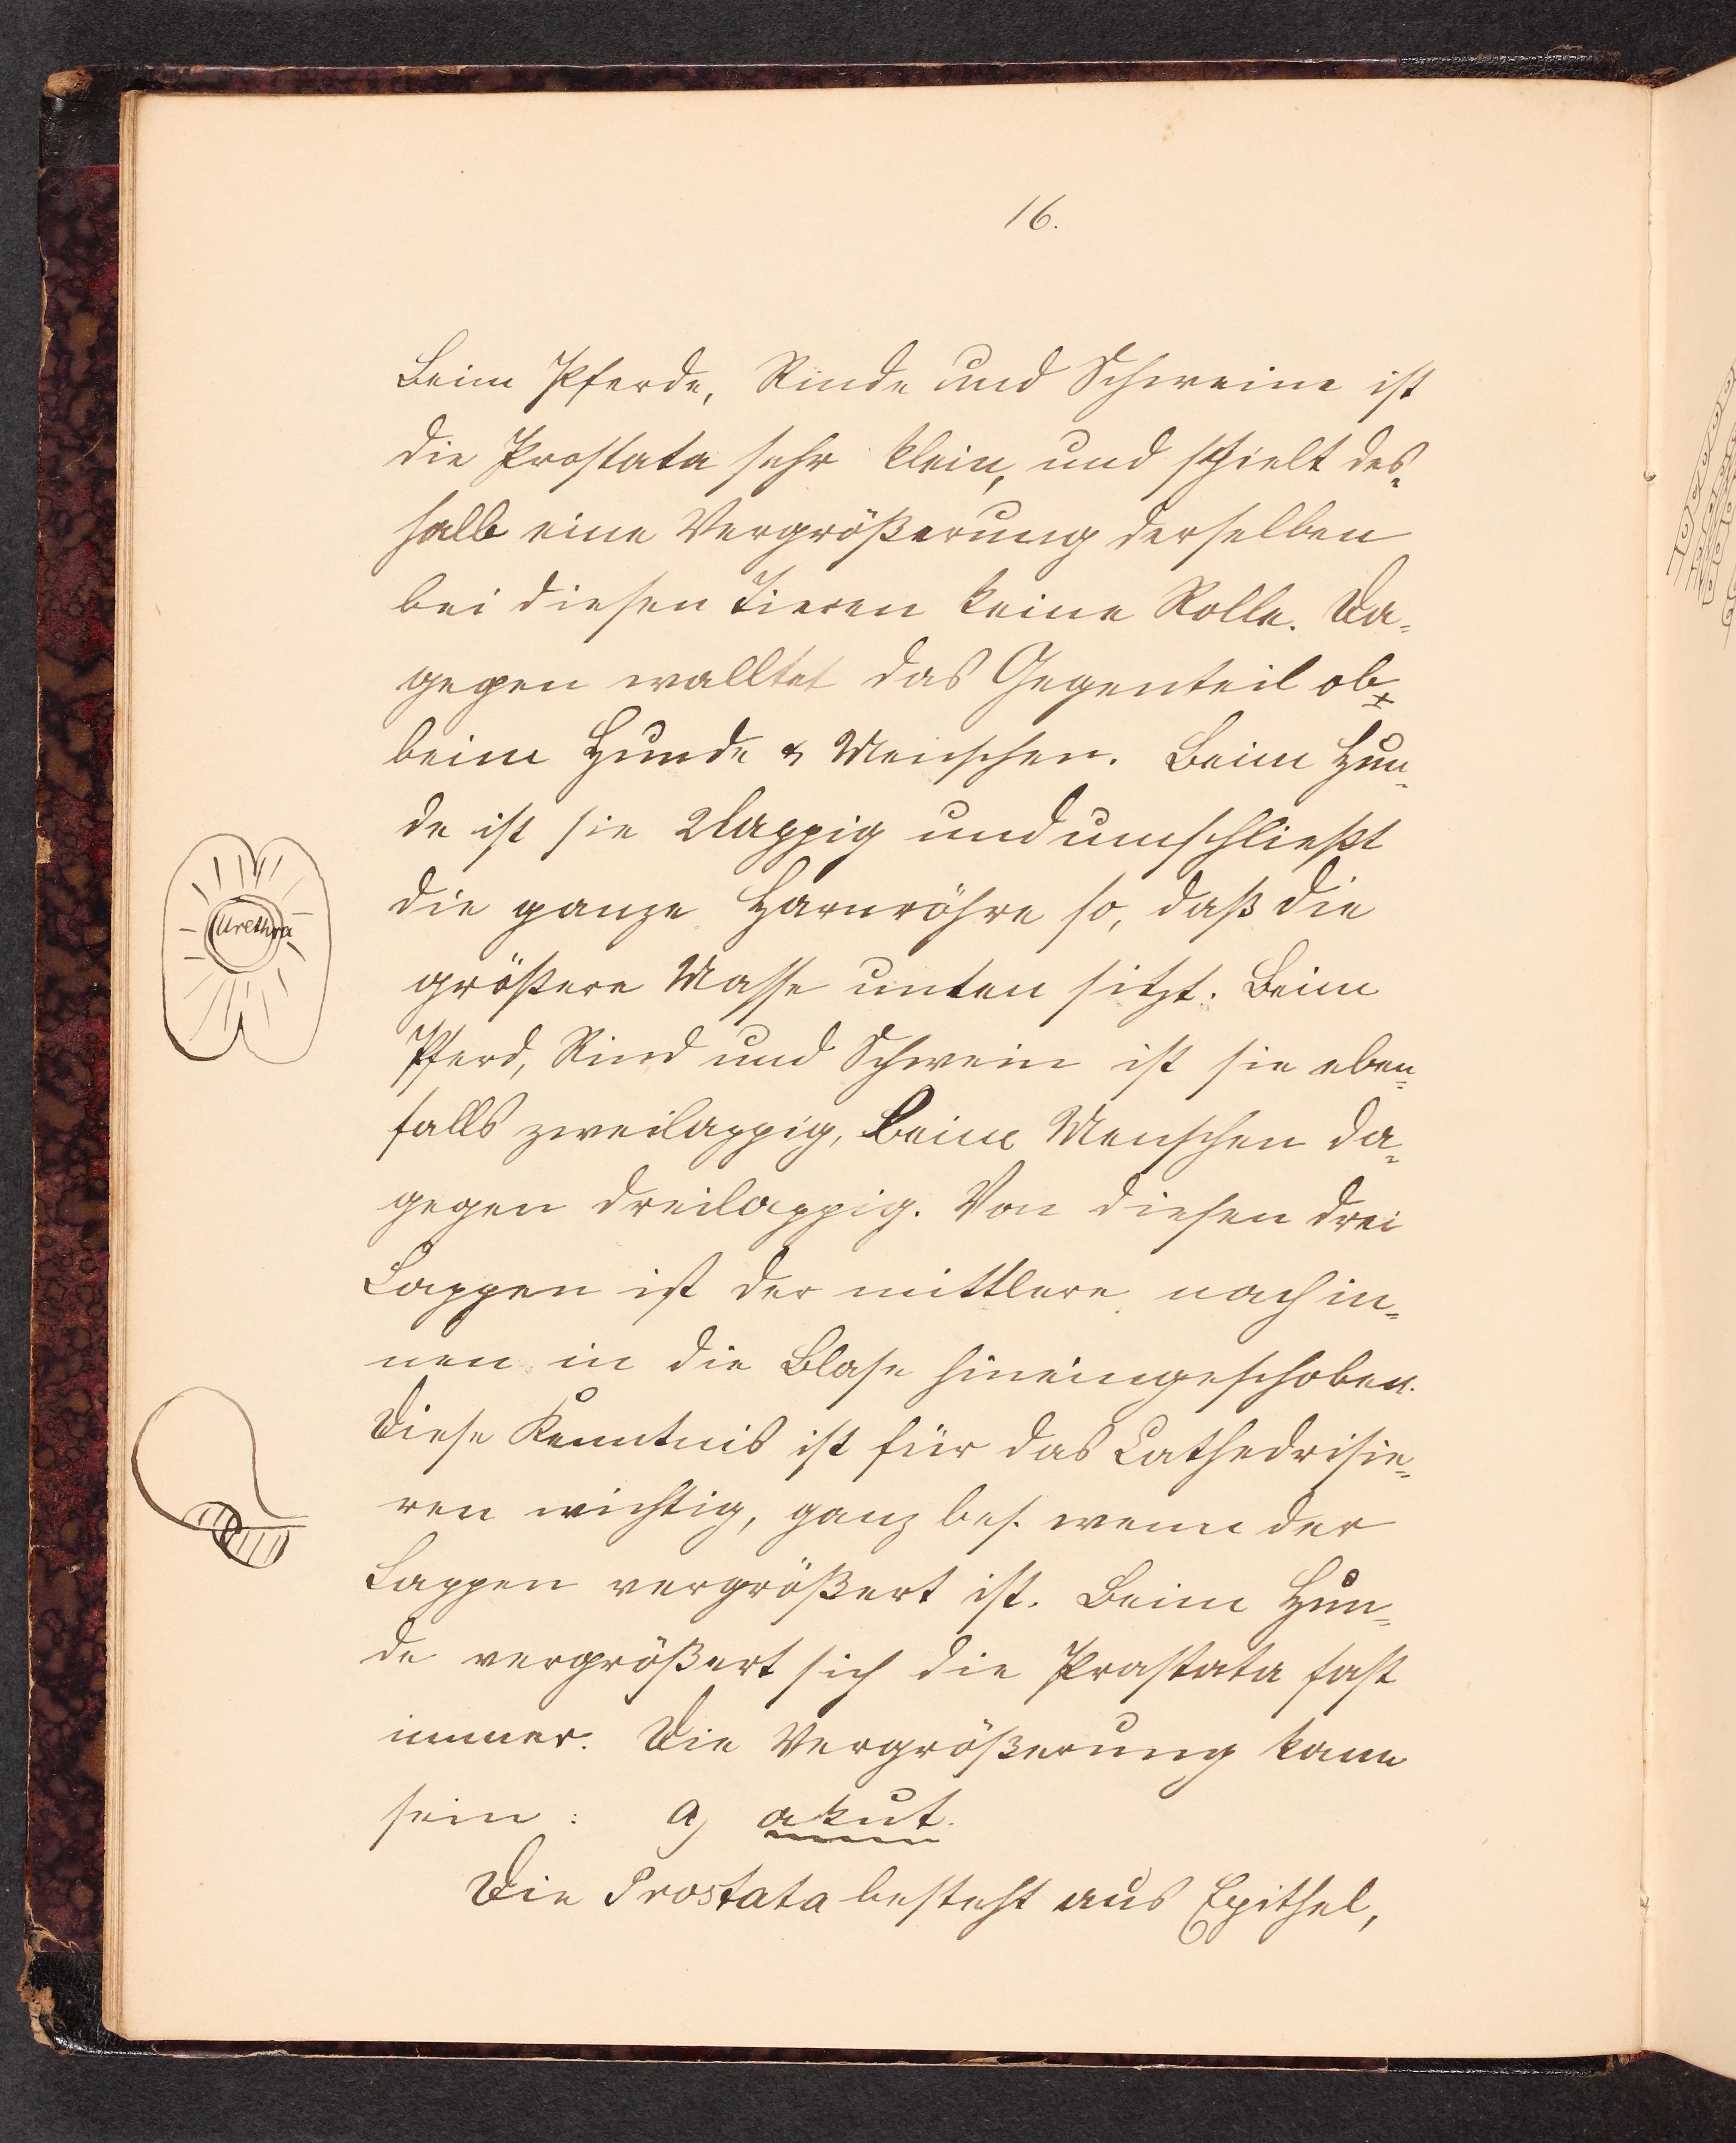 16.
Beim Pferde, Rinde und Schweine ist
die Prostata sehr klein, und spielt des-
halb eine Vergrößerung derselben
bei diesen Tieren keine Rolle. Da-
gegen walltet das Gegenteil ob
beim Hunde & Menschen. Beim Hun-
de ist sie 2lappig und umschließt
die ganze Harnröhre so, daß die
Urethra
größere Masse unten sitzt. Beim
Pferd, Rind und Schwein ist sie eben-
falls zweilappig, Beim Menschen da-
gegen dreilappig. Von diesen drei
Lappen ist der mittlere nach in-
nen in die Blase hineingeschoben.
Diese Kenntnis ist für das Cathedrisie-
ren wichtig, ganz bes. wenn der
Lappen vergrößert ist. Beim Hun-
de vergrößert sich die Prastata fast
immer. Die Vergrößerung kann
sein: a) akut.
Die Prostata besteht aus Epithel,